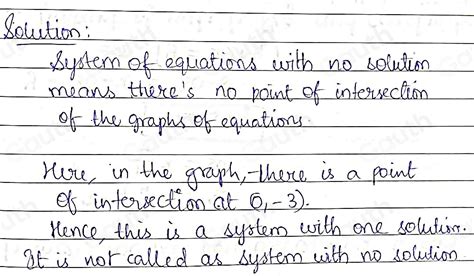 Solution:
System of equations with no solution
means there's no point of intersection
of the graphs of equations.
Here, in the graph, there is a point
of intersection at (0,-3).
Hence, this is a system with one solution.
It is not called as system with no solution